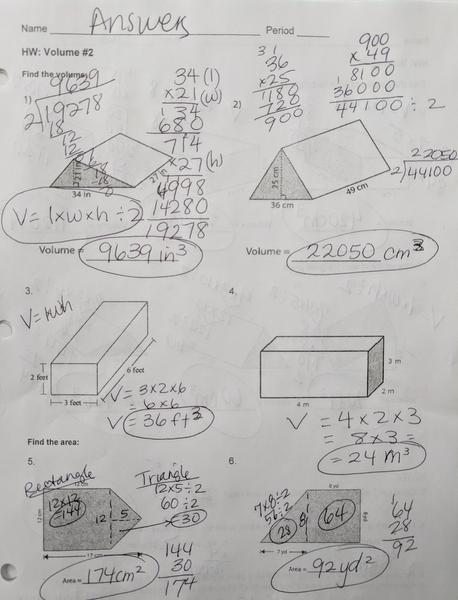 Name Answers Period
HW: Volume #2
Find the volume
1)
9639
2 19278
18
12
12
34 (l)
× 21 (w)
34
680
714
× 27 (h)
4998
14280
19278
21 in
27 in
34 in
V = l x w x h ÷ 2
Volume = 9639 in³
2)
3 1
36
× 25
180
720
900
900
× 49
8100
36000
44100 ÷ 2
22050
2 44100
25 cm
36 cm
49 cm
Volume = 22050 cm³
3.
V = lwh
2 feet
3 feet
6 feet
V = 3 x 2 x 6
= 6 x 6
V = 36 ft³
4.
3 m
2 m
4 m
V = 4 x 2 x 3
= 8 x 3 =
= 24 m³
Find the area:
5.
Rectangle
12 x 12
= 144
12 cm
12
5
17 cm
Triangle
12 x 5 ÷ 2
60 ÷ 2
= 30
144
30
174
Area = 174 cm²
6.
8 yd
7 x 8 ÷ 2
56 ÷ 2
28
8
64
8 yd
7 yd
64
28
92
Area = 92 yd²